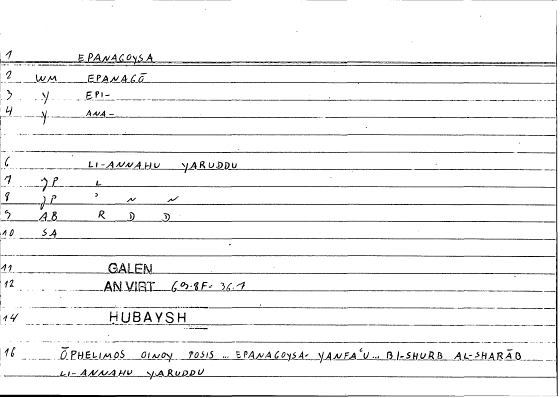 1 EPANAGOYSA
2 WM EPANAGŌ
3 Y EPI-
4 Y ANA-
6 LI-ANNAHU YARUDDU
7 JP L
8 JP ʾ N N
9 AB R D D
10 SA
11 GALEN
12 AN VIRT
14 HUBAYSH
16 ŌPHELIMOS OINOY POSIS … EPANAGOYSA- YANFAʿU … BI-SHURB AL-SHARĀB
LI-ANNAHU YARUDDU